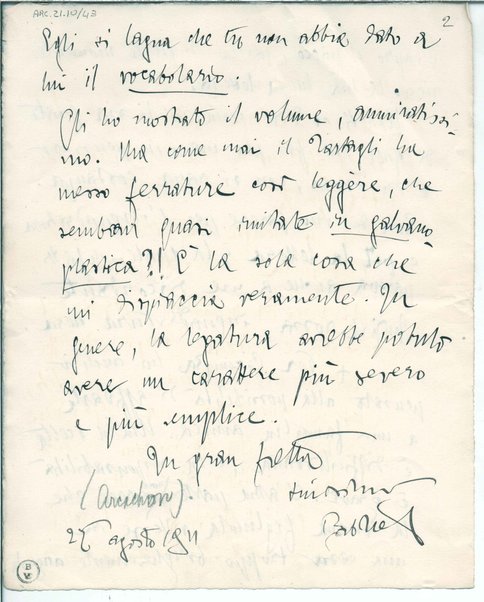 ARC.21.10/43
2
Egli si lagna che tu non abbia dato a
lui il vocabolario.
Gli ho mostrato il volume, ammiratissi-
mo. Ma come mai il ha
messo ferrature così leggère, che
sembran quasi imitate in galvano
plastica?! È la sola cosa che
mi dispiaccia veramente. In
genere, la legatura avrebbe potuto
avere un carattere più severo
e più semplice.
In gran fretta
(Arcachon).
25 agosto 1911
Gabriel